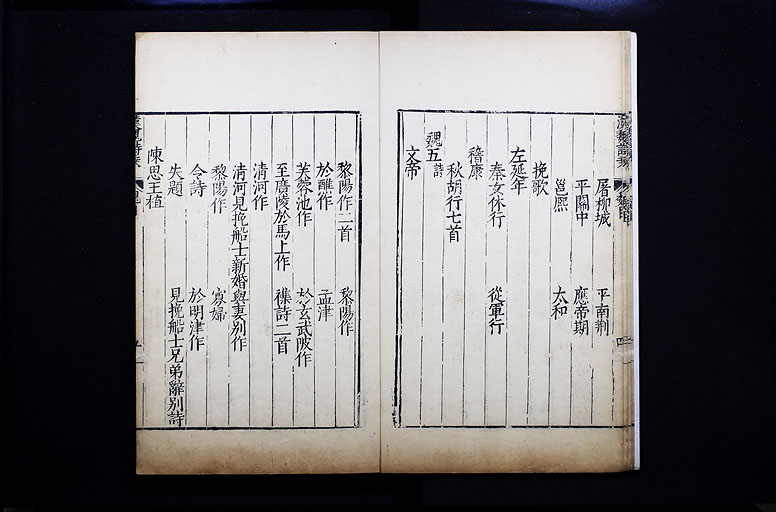 屠柳城 平南荆
平關中 應帝期
邕熈 太和
挽歌
左延年
秦女休行 從軍行
嵇康
秋胡行七首
魏五 詩
文帝
四
黎陽作二首 黎陽作
於醮作 孟津
芙蓉池作 於玄武陂作
至廣陵於馬上作 襍詩二首
清河作
清河見挽船士新婚與妻别作
黎陽作 寡婦
令詩 於明津作
失題 見挽船士兄弟辭别詩
陳思王植